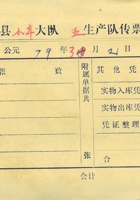 县 大队 五 生产队传票
公元 79年3月2日
张数
附属单据共
张
其他凭
实物入库凭
实物出库凭
凭证整理
合
会计